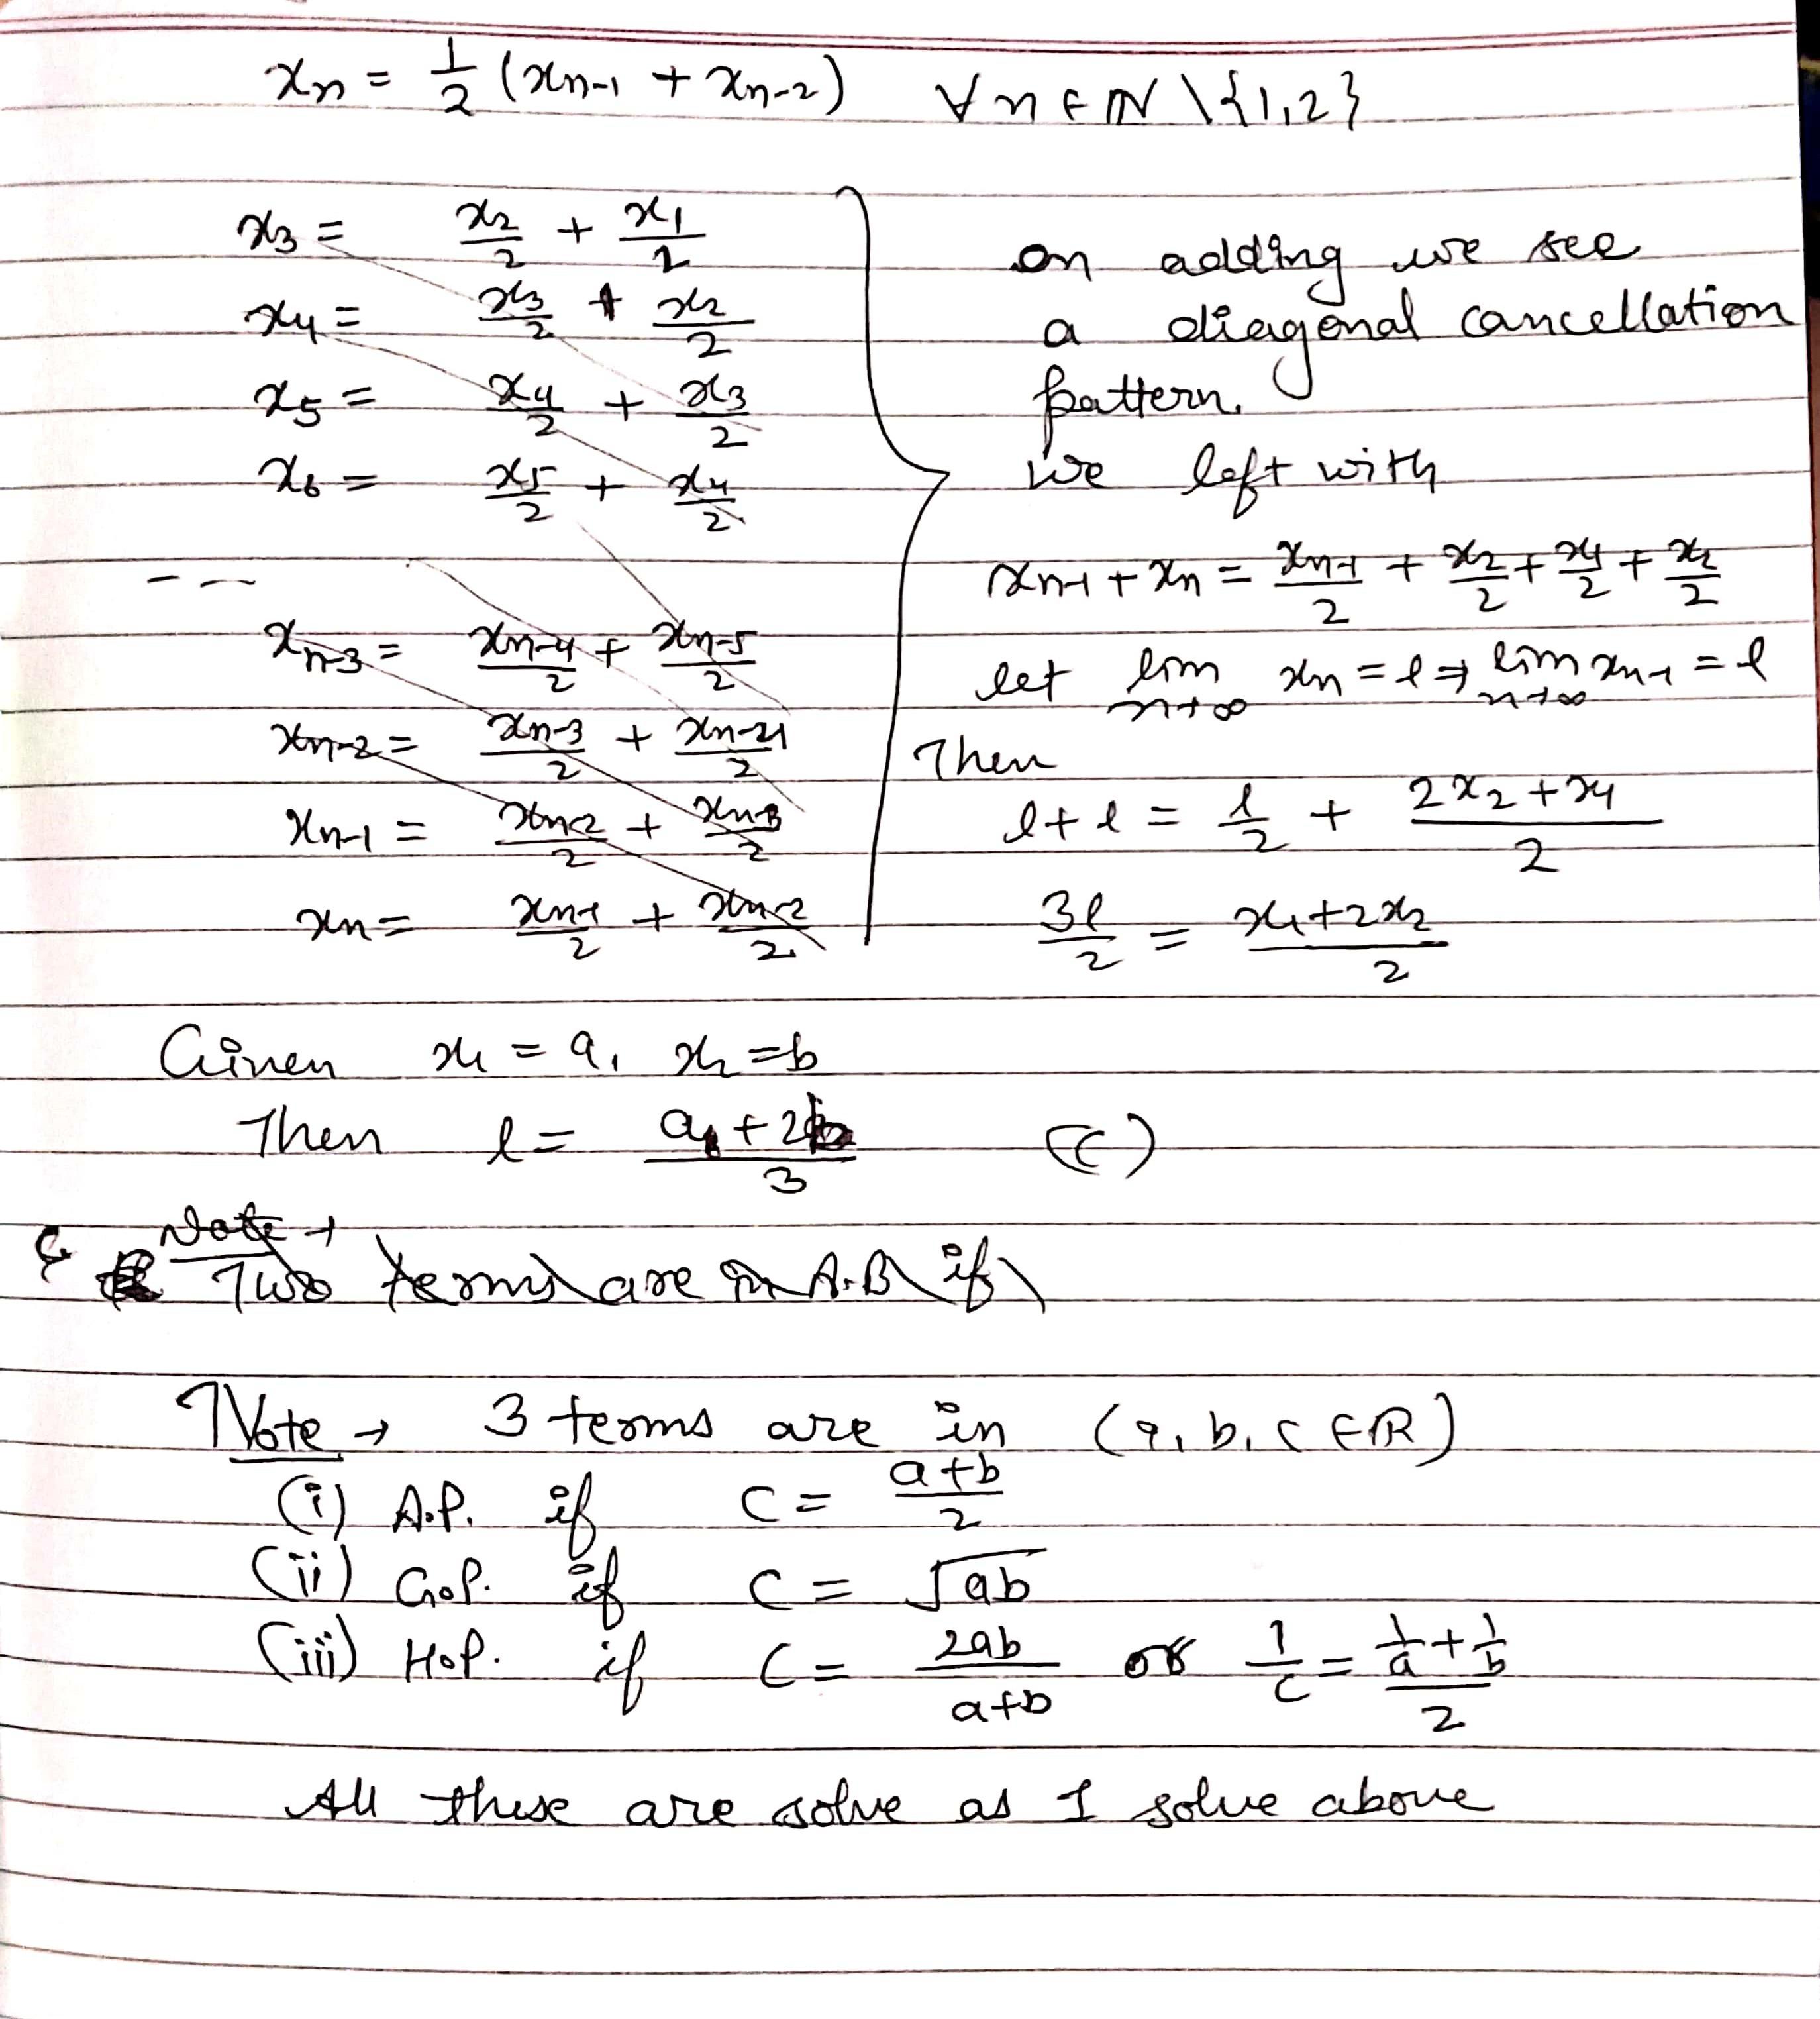 xn = 1/2 (xn-1 + xn-2) ∀ n ∈ ℕ \ {1,2}
x3 = x2/2 + x1/2
x4 = x3/2 + x2/2
x5 = x4/2 + x3/2
x6 = x5/2 + x4/2
- -
xn-3 = xn-4/2 + xn-5/2
xn-2 = xn-3/2 + xn-4/2
xn-1 = xn-2/2 + xn-3/2
xn = xn-1/2 + xn-2/2
on adding we see
a diagonal cancellation
pattern.
we left with
xn-1 + xn = xn-1/2 + x2/2 + x1/2 + x2/2
let lim n→∞ xn = l ⇒ lim n→∞ xn-1 = l
Then
l + l = l/2 + (2x2 + x1)/2
3l/2 = (x1 + 2x2)/2
Given x1 = a, x2 = b
Then l = (a + 2b)/3 (C)
Note →
Two terms are in A.P. if
Note → 3 terms are in (a, b, c ∈ ℝ)
(i) A.P. if c = (a+b)/2
(ii) G.P. if c = √ab
(iii) H.P. if c = 2ab/(a+b) or 1/c = (1/a + 1/b)/2
All these are solve as I solve above